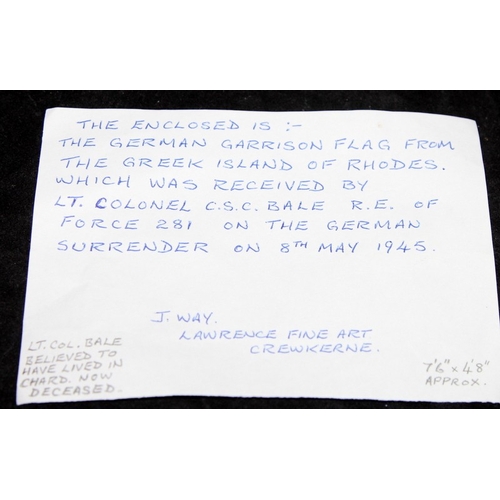 THE ENCLOSED IS :-
THE GERMAN GARRISON FLAG FROM
THE GREEK ISLAND OF RHODES.
WHICH WAS RECEIVED BY
LT. COLONEL C.S.C. BALE R.E. OF
FORCE 281 ON THE GERMAN
SURRENDER ON 8TH MAY 1945.
J. WAY.
LAWRENCE FINE ART
CREWKERNE.
LT. COL. BALE
BELIEVED TO
HAVE LIVED IN
CHARD. NOW
DECEASED.
7'6" x 4'8"
APPROX.